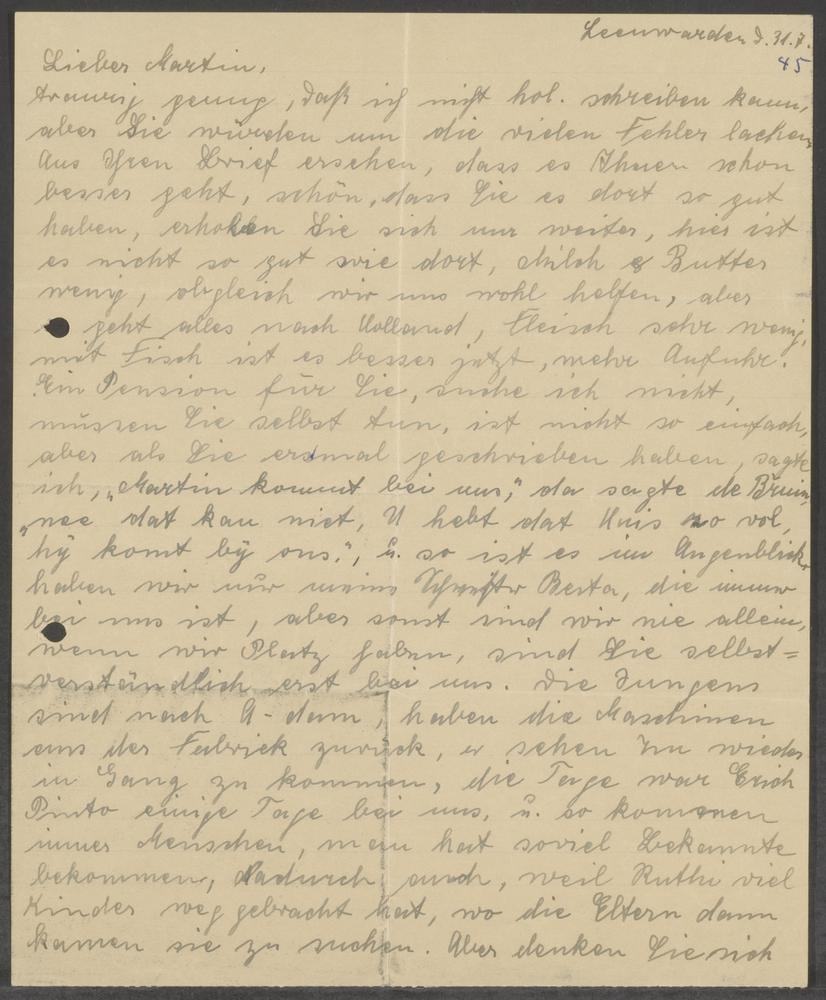 Leeuwarden d. 31.7.
45
Lieber Martin,
traurig genug, daß ich nicht hol. schreiben kann,
aber Sie würden um die vielen Fehler lachen.
Aus Ihren Brief ersehen, dass es Ihnen schon
besser geht, schön, dass Sie es dort so gut
haben, erholen Sie sich nur weiter, hier ist
es nicht so gut wie dort, Milch & Butter
wenig, obgleich wir uns wohl helfen, aber
geht alles nach Holland, Fleisch sehr wenig,
mit Fisch ist es besser jetzt, mehr Anfuhr.
Ein Pension für Sie, suche ich nicht,
müssen Sie selbst tun, ist nicht so einfach,
aber als Sie ersmal geschrieben haben, sagte
ich, „Martin kommt bei uns," da sagte de Bruin,
„nee dat kan niet, U hebt dat Huis zo vol,
hÿ komt bÿ ons.", u. so ist es im Augenblick
haben wir nur meine Schwester Berta, die immer
bei uns ist, aber sonst sind wir nie allein,
wenn wir Platz haben, sind Sie selbst=
verständlich erst bei uns. Die Jungens
sind nach A-dam, haben die Maschinen
aus der Fabriek zurück, u sehen zu wieder
in Gang zu kommen, die Tage war Erich
Pinto einige Tage bei uns, u. so kommen
immer Menschen, man hat soviel Bekannte
bekommen, dadurch auch, weil Ruthi viel
Kinder weggebracht hat, wo die Eltern dann
kamen sie zu suchen. Aber denken Sie sich